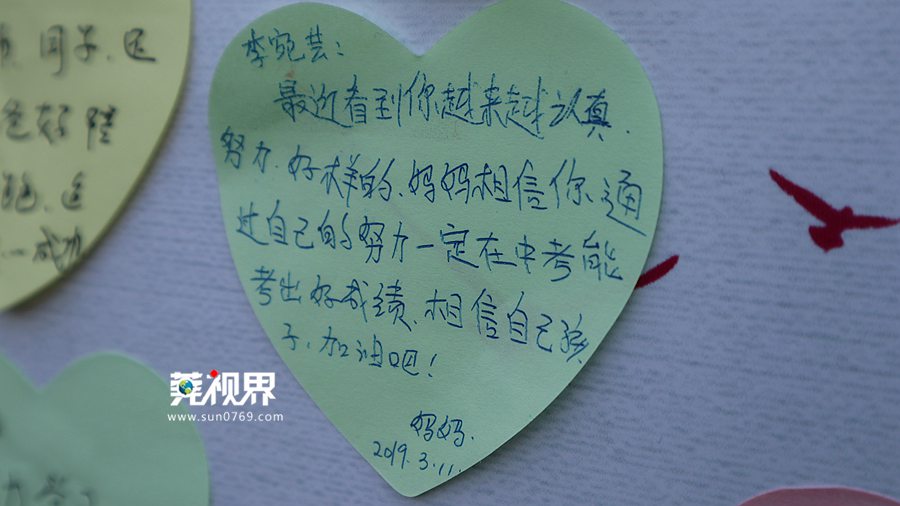 李宛芸：
最近看到你越来越认真、
努力、好样的、妈妈相信你通
过自己的努力一定在中考能
考出好成绩、相信自己孩
子、加油吧！
妈妈.
2019.3.11.
莞视界
www.sun0769.com
同子、还
成功